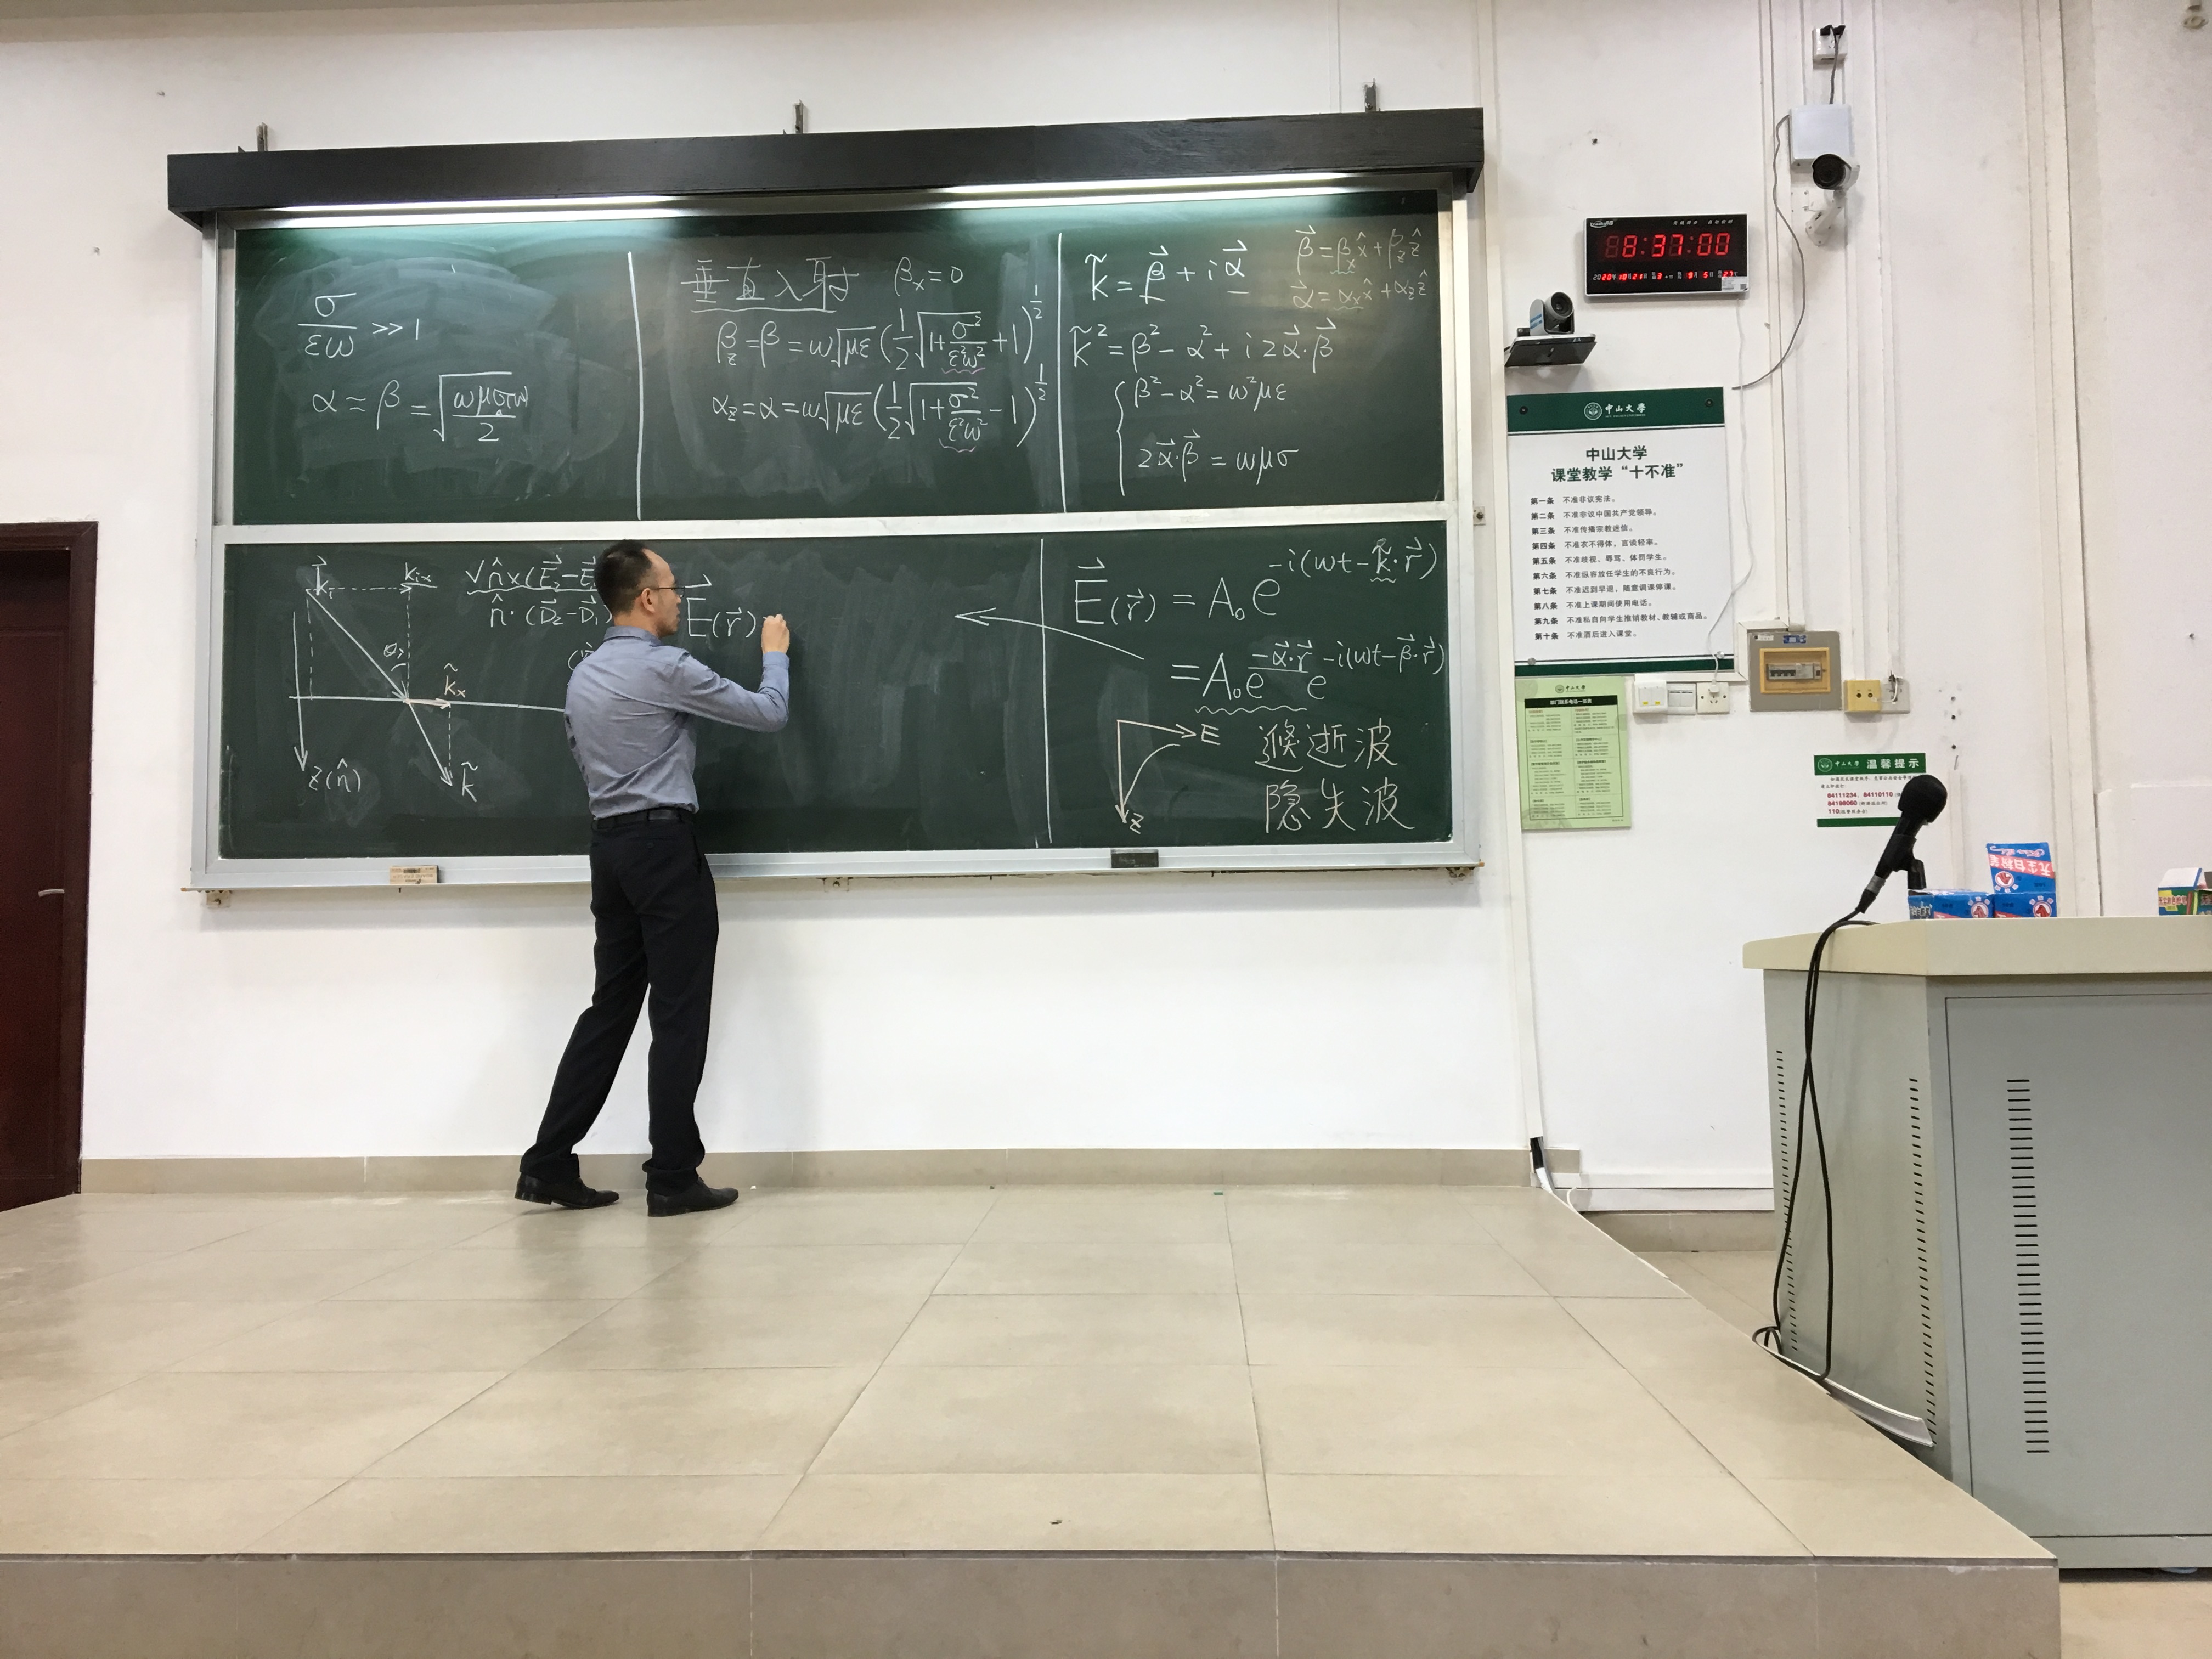 σ/εω >> 1
α ≈ β = √(ωμσ(ω)/2)
垂直入射 βₓ=0
β_z = β = ω√με (1/2 √(1+σ²/ε²ω²) + 1)^(1/2)
α_z = α = ω√με (1/2 √(1+σ²/ε²ω²) - 1)^(1/2)
k̃ = β⃗ + iα⃗
β⃗ = βₓx̂ + β_zẑ
α⃗ = αₓx̂ + α_zẑ
k̃² = β² - α² + i2α⃗·β⃗
β² - α² = ω²με
2α⃗·β⃗ = ωμσ
k⃗ᵢ
kᵢₓ
θᵢ
k̃ₓ
k̃
z(n̂)
√ n̂×(E⃗₂-E
n̂·(D⃗₂-D⃗₁)
E⃗(r⃗)
E⃗(r⃗) = A₀e^(-i(ωt-k̃·r⃗))
= A₀e^(-α⃗·r⃗) e^(-i(ωt-β⃗·r⃗))
E
z
倏逝波
隐失波
8:37:00
2020年10月21日
中山大學
中山大学
课堂教学“十不准”
第一条 不准非议宪法。
第二条 不准非议中国共产党领导。
第三条 不准传播宗教迷信。
第四条 不准衣不得体，言谈轻率。
第五条 不准歧视、辱骂、体罚学生。
第六条 不准纵容放任学生的不良行为。
第七条 不准迟到早退，随意调课停课。
第八条 不准上课期间使用电话。
第九条 不准私自向学生推销教材、教辅或商品。
第十条 不准酒后进入课堂。
中山大學
中山大學 温馨提示
84111234、84110110
84198060
110